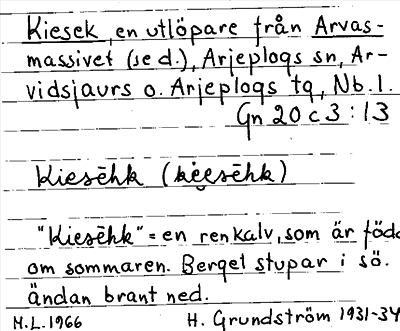 Kiesek, en utlöpare från Arvas-
massivet (se d.), Arjeplogs sn, Ar-
vidsjaurs o. Arjeplogs tg, Nb. l.
Gn 20 c 3 : 13
Kiesēhk (kiesēhk)
"Kiesēhk" = en renkalv, som är född
om sommaren. Berget stupar i sö.
ändan brant ned.
M.L. 1966 H. Grundström 1931-34